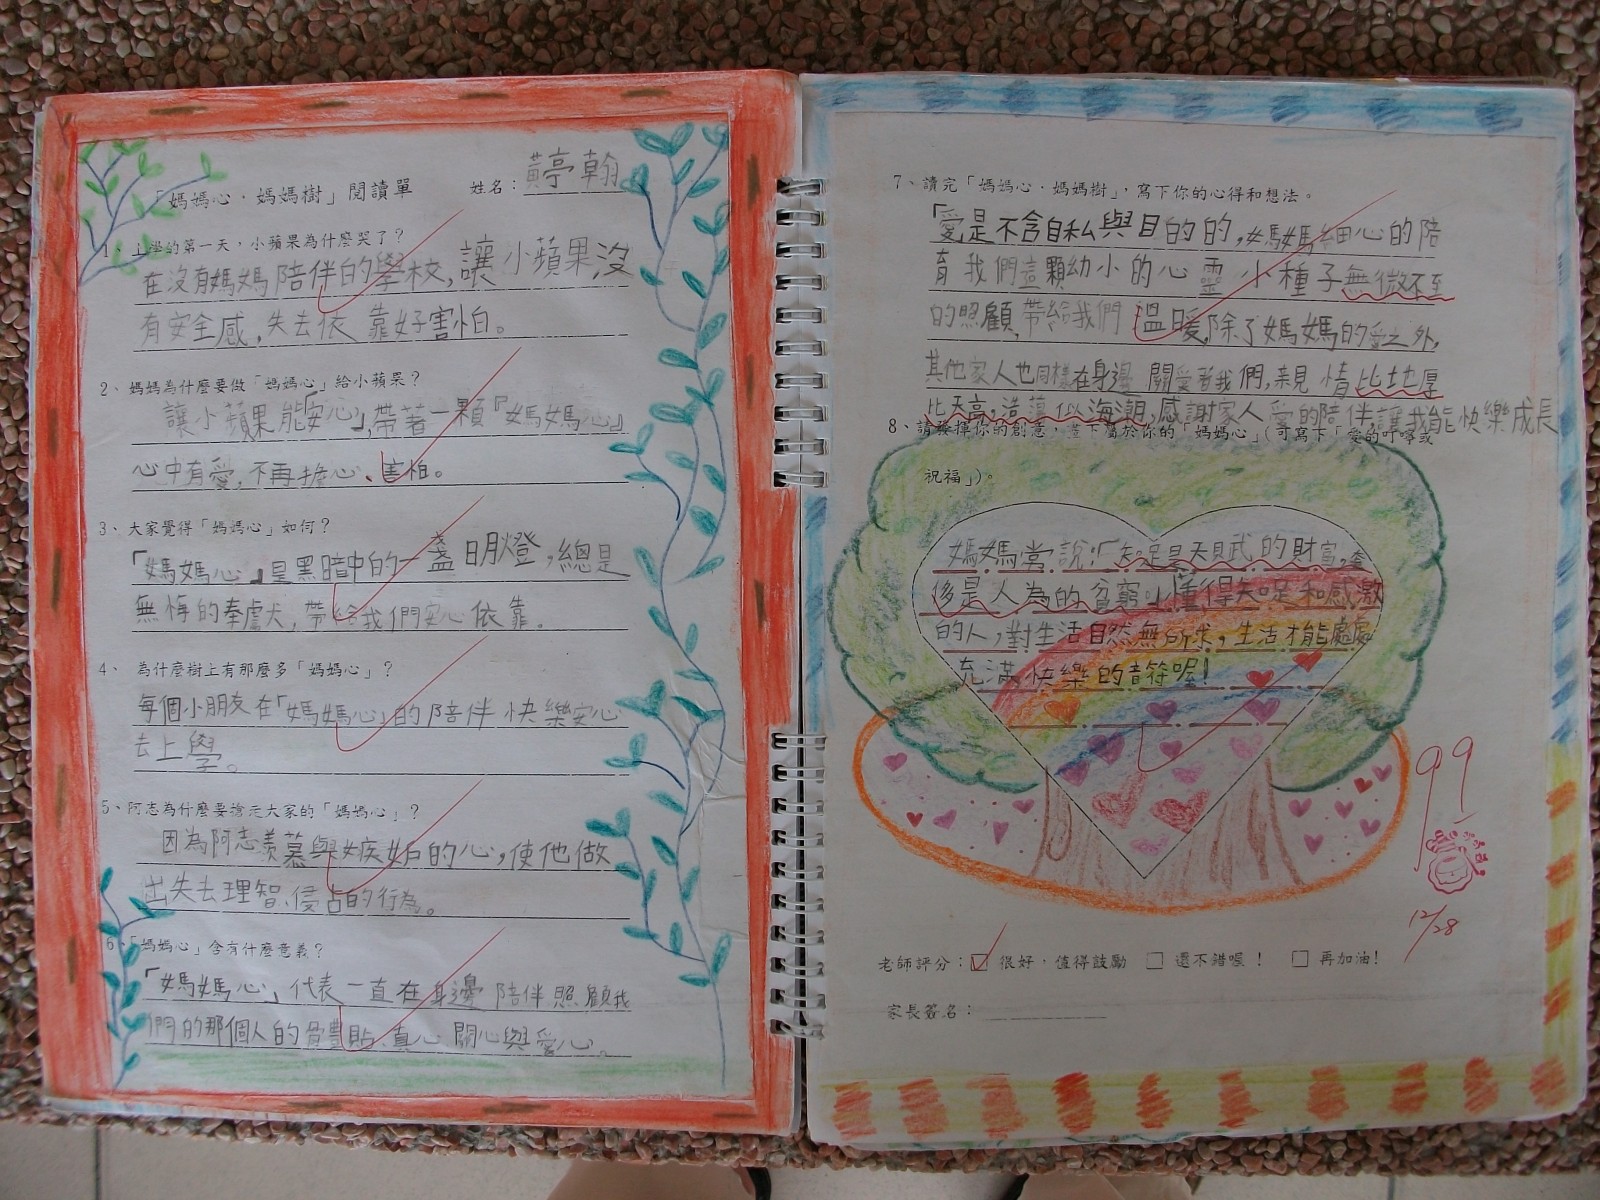 「媽媽心·媽媽樹」閱讀單 姓名：黃亭翰
1、上學的第一天，小蘋果為什麼哭了？
在沒有媽媽陪伴的學校，讓小蘋果沒
有安全感，失去依靠好害怕。
2、媽媽為什麼要做「媽媽心」給小蘋果？
讓小蘋果能「安心」，帶著一顆『媽媽心』
心中有愛，不再擔心、害怕。
3、大家覺得「媽媽心」如何？
「媽媽心」是黑暗中的一盞明燈，總是
無悔的奉處犬，帶給我們安心依靠。
4 為什麼樹上有那麼多「媽媽心」？
每個小朋友在「媽媽心」的陪伴快樂安心
去上學。
5、阿志為什麼要搶走大家的「媽媽心」？
因為阿志羨慕與嫉妒的心，使他做
出失去理智、侵占的行為。
6、「媽媽心」含有什麼意義？
「媽媽心」代表一直在身邊陪伴照顧我
們的那個人的體貼、真心關心與愛心。
7、讀完「媽媽心·媽媽樹」，寫下你的心得和想法。
「愛是不含自私與目的的，媽媽細心的陪
育我們這顆幼小的心靈小種子無微不至
的照顧，帶給我們溫暖，除了媽媽的愛之外，
其他家人也同樣在身邊關愛著我們，親情比地厚
比天高，浩蕩似海潮，感謝家人愛的陪伴讓我能快樂成長
8、請發揮你的創意，畫下屬於你的「媽媽心」（可寫下「愛的叮嚀或
祝福」）。
媽媽常說：「知足是天賦的財富，奢
侈是人為的貧窮」懂得知足和感激
的人，對生活自然無所求，生活才能處處
充滿快樂的音符喔！
99
12/28
老師評分：☑ 很好，值得鼓勵 □ 還不錯喔！ □ 再加油！
家長簽名：